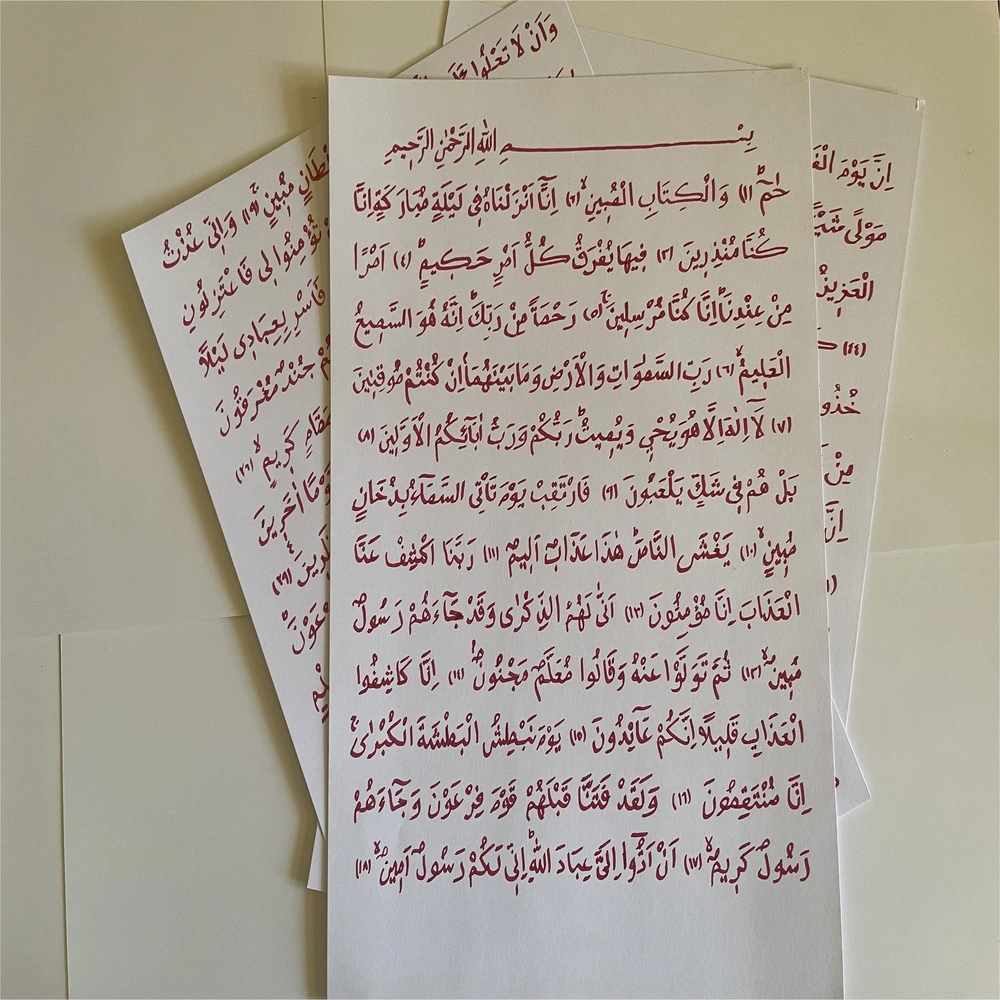 بِسْــــــــــمِ اللّٰهِ الرَّحْمٰنِ الرَّحِيمِ
حٰمٓ ﴿١﴾ وَالْكِتَابِ الْمُبِينِ ﴿٢﴾ اِنَّٓا اَنْزَلْنَاهُ فِي لَيْلَةٍ مُبَارَكَةٍ اِنَّا
كُنَّا مُنْذِرِينَ ﴿٣﴾ فِيهَا يُفْرَقُ كُلُّ اَمْرٍ حَكِيمٍ ﴿٤﴾ اَمْرًا
مِنْ عِنْدِنَا اِنَّا كُنَّا مُرْسِلِينَ ﴿٥﴾ رَحْمَةً مِنْ رَبِّكَ اِنَّهُ هُوَ السَّمِيعُ
الْعَلِيمُ ﴿٦﴾ رَبِّ السَّمٰوَاتِ وَالْاَرْضِ وَمَا بَيْنَهُمَا اِنْ كُنْتُمْ مُوقِنِينَ
﴿٧﴾ لَٓا اِلٰهَ اِلَّا هُوَ يُحْيِي وَيُمِيتُ رَبُّكُمْ وَرَبُّ اٰبَٓائِكُمُ الْاَوَّلِينَ ﴿٨﴾
بَلْ هُمْ فِي شَكٍّ يَلْعَبُونَ ﴿٩﴾ فَارْتَقِبْ يَوْمَ تَاْتِي السَّمَٓاءُ بِدُخَانٍ
مُبِينٍ ﴿١٠﴾ يَغْشَى النَّاسَ هٰذَا عَذَابٌ اَلِيمٌ ﴿١١﴾ رَبَّنَا اكْشِفْ عَنَّا
الْعَذَابَ اِنَّا مُؤْمِنُونَ ﴿١٢﴾ اَنّٰى لَهُمُ الذِّكْرٰى وَقَدْ جَٓاءَهُمْ رَسُولٌ
مُبِينٌ ﴿١٣﴾ ثُمَّ تَوَلَّوْا عَنْهُ وَقَالُوا مُعَلَّمٌ مَجْنُونٌ ﴿١٤﴾ اِنَّا كَاشِفُوا
الْعَذَابِ قَلِيلًا اِنَّكُمْ عَٓائِدُونَ ﴿١٥﴾ يَوْمَ نَبْطِشُ الْبَطْشَةَ الْكُبْرٰى
اِنَّا مُنْتَقِمُونَ ﴿١٦﴾ وَلَقَدْ فَتَنَّا قَبْلَهُمْ قَوْمَ فِرْعَوْنَ وَجَٓاءَهُمْ
رَسُولٌ كَرِيمٌ ﴿١٧﴾ اَنْ اَدُّٓوا اِلَيَّ عِبَادَ اللّٰهِ اِنِّي لَكُمْ رَسُولٌ اَمِينٌ ﴿١٨﴾
وَاَنْ لَا تَعْلُوا
مُبِينٍ ﴿١٩﴾ وَاِنِّي عُذْتُ
تُؤْمِنُوا لِي فَاعْتَزِلُونِ
فَاَسْرِ بِعِبَادِي لَيْلًا
جُنْدٌ مُغْرَقُونَ
كَرِيمٍ ﴿٢٦﴾
اٰخَرِينَ
﴿٢٩﴾
اِنَّ يَوْمَ
مَوْلًى
الْعَزِيزُ
﴿٤٤﴾
خُذُوهُ
مِنْ
اِنَّ